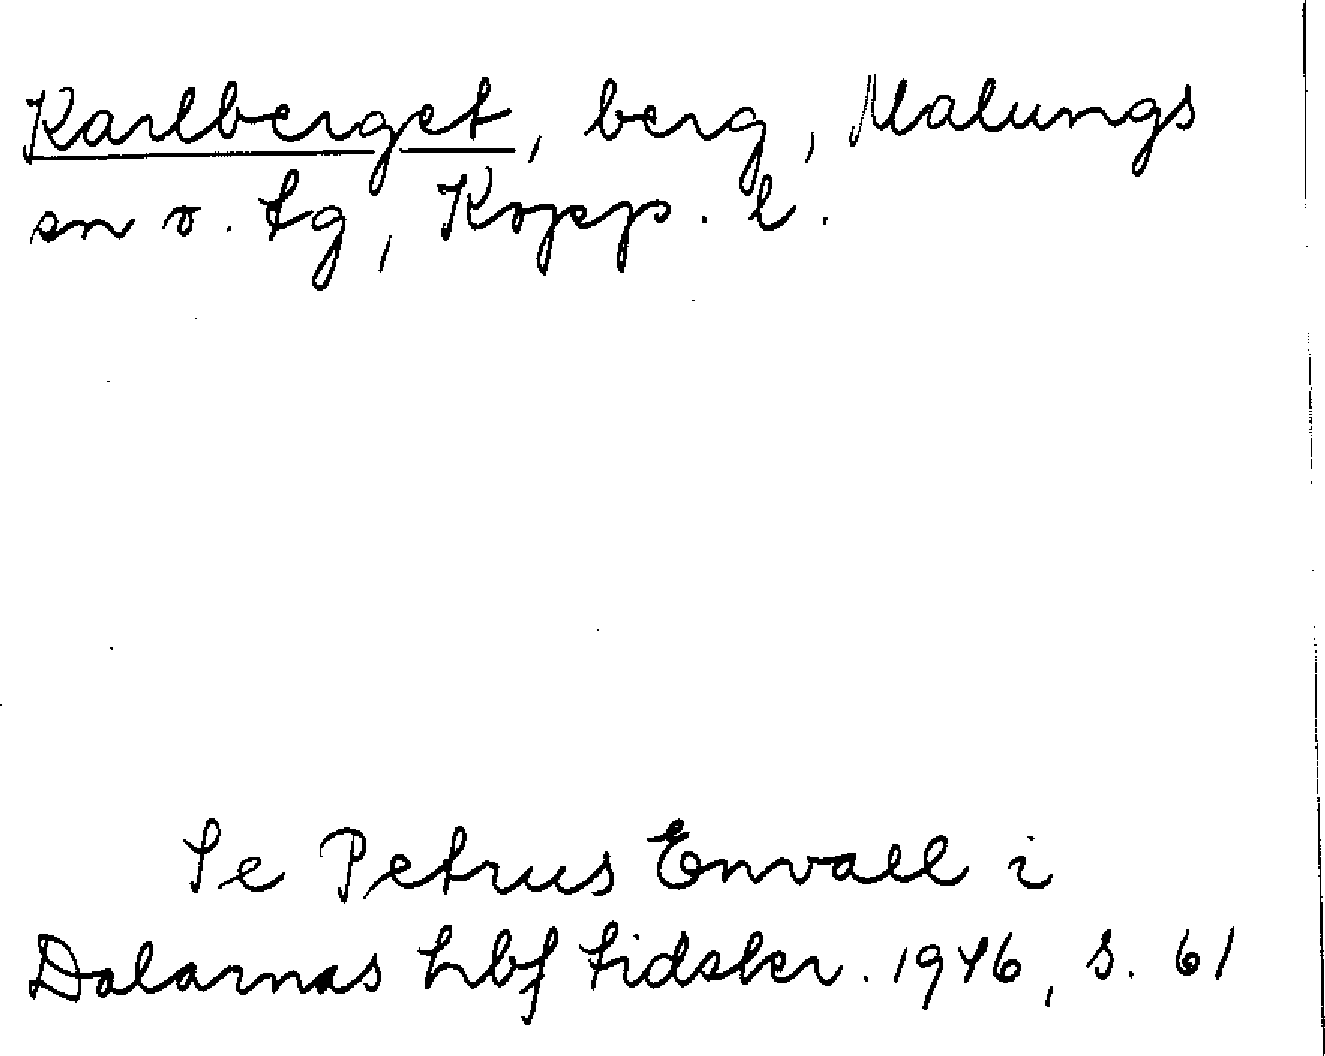 Karlberget, berg, Malungs
sn o. tg, Kopp. l.
Se Petrus Envall i
Dalarnas hbf tidskr. 1946, s. 61